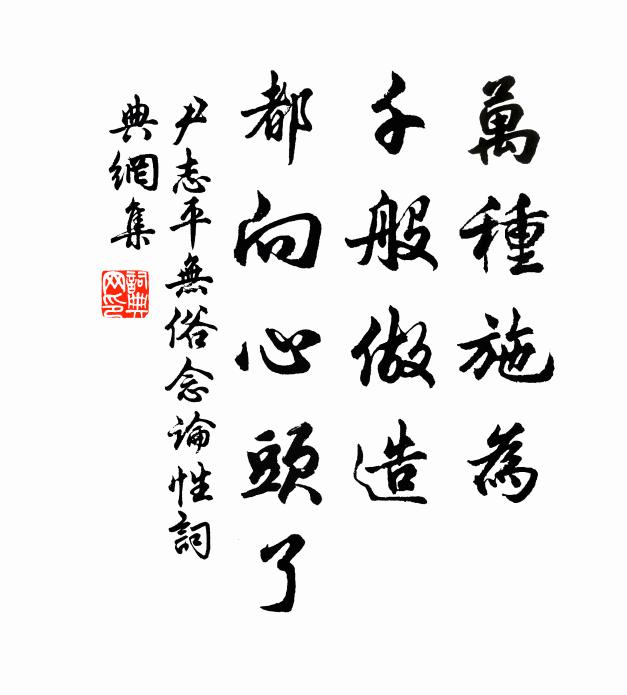 萬種施為
千般做造
都向心頭了
尹志平無俗念論性詞
典網集
詞典网印